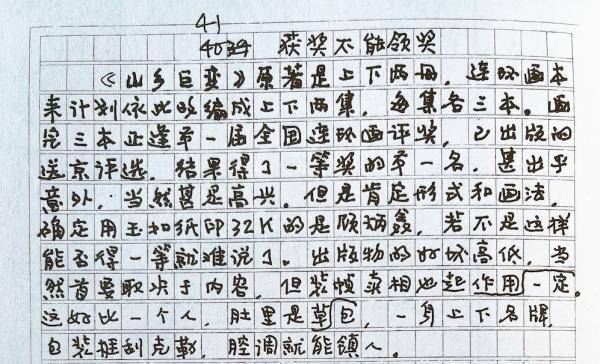 41
4034 获奖不能领奖
《山乡巨变》原著是上下两册，连环画本
来计划依此改编成上下两集，每集各三本。画
完三本正逢第一届全国连环画评奖，已出版的
送京评选，结果得了一等奖的第一名，甚出乎
意外，当然甚是高兴。但是肯定形式和画法，
确定用玉扣纸印32K的是顾炳鑫，若不是这样
能否得一等就难说了。出版物的好坏高低，当
然首要取决于内容，但装帧卖相也起作用一定。
这好比一个人，肚里是草包，一身上下名牌，
包装挺刮克勒，腔调就能镇人。